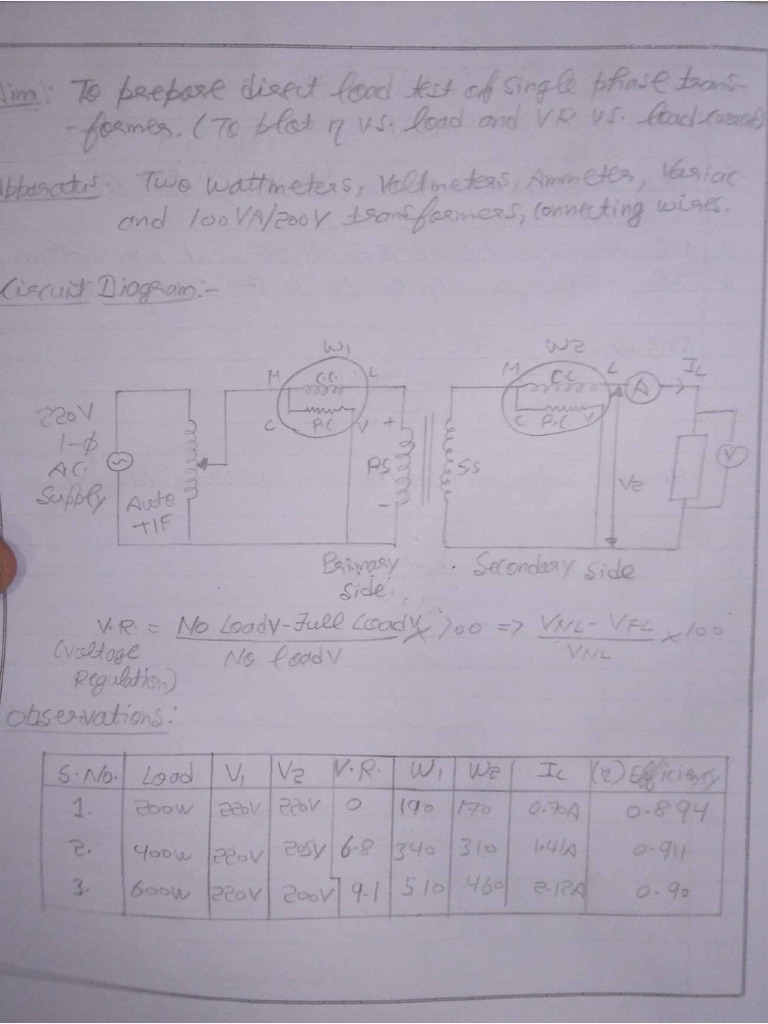 Aim: To prepare direct load test of single phase trans-
-former. (To plot η vs. load and VR vs. load
Apparatus: Two Wattmeters, Voltmeters, Ammeter, Variac
and 100VA/200V transformers, connecting wires.
Circuit Diagram:-
W1
W2
M C.C. L
M C.C. L
A
IL
220V
1-φ
AC
Supply
Auto
T/F
C P.C V
C P.C V
+
PS
-
SS
V2
V
Primary
side
Secondary side
V.R. = No LoadV-Full LoadV x 100 => VNL - VFL x 100
(Voltage No loadV VNL
Regulation)
Observations:
S.No. Load V1 V2 V.R. W1 W2 IL (η) Efficiency
1. 200W 220V 220V 0 190 170 0.70A 0.894
2. 400W 220V 205V 6.8 340 310 1.41A 0.911
3. 600W 220V 200V 9.1 510 460 2.12A 0.90